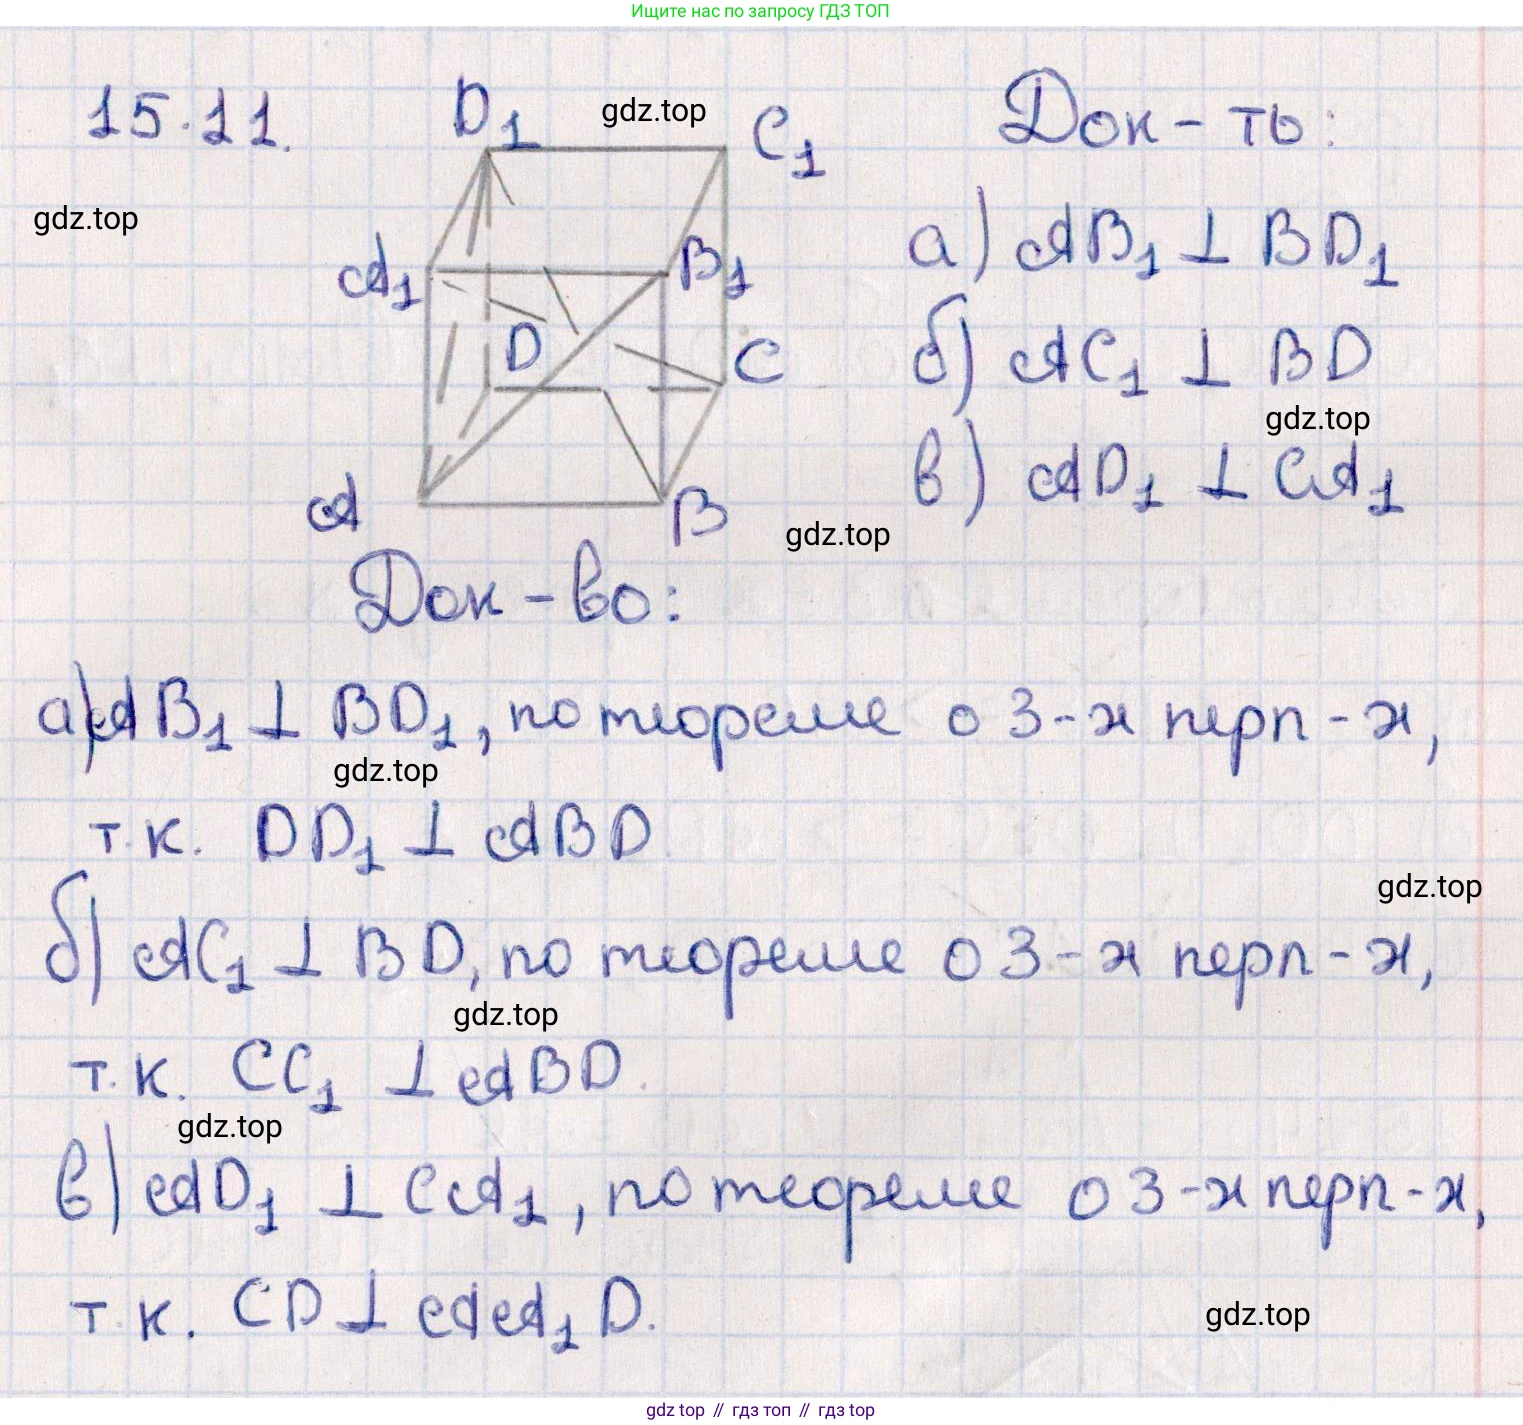 Ищите нас по запросу ГДЗ ТОП
15.11.
D1
gdz.top
C1
Док-ть:
gdz.top
A1
B1
а) AB1 ⊥ BD1
D
C
б) AC1 ⊥ BD
gdz.top
A
B
в) AD1 ⊥ CA1
gdz.top
Док-во:
а) AB1 ⊥ BD1, по теореме о 3-х перп-х,
gdz.top
т.к. DD1 ⊥ ABD.
gdz.top
б) AC1 ⊥ BD, по теореме о 3-х перп-х,
gdz.top
т.к. CC1 ⊥ ABD.
gdz.top
в) AD1 ⊥ CA1, по теореме о 3-х перп-х,
т.к. CD ⊥ AA1D.
gdz.top
gdz top // гдз топ // гдз top